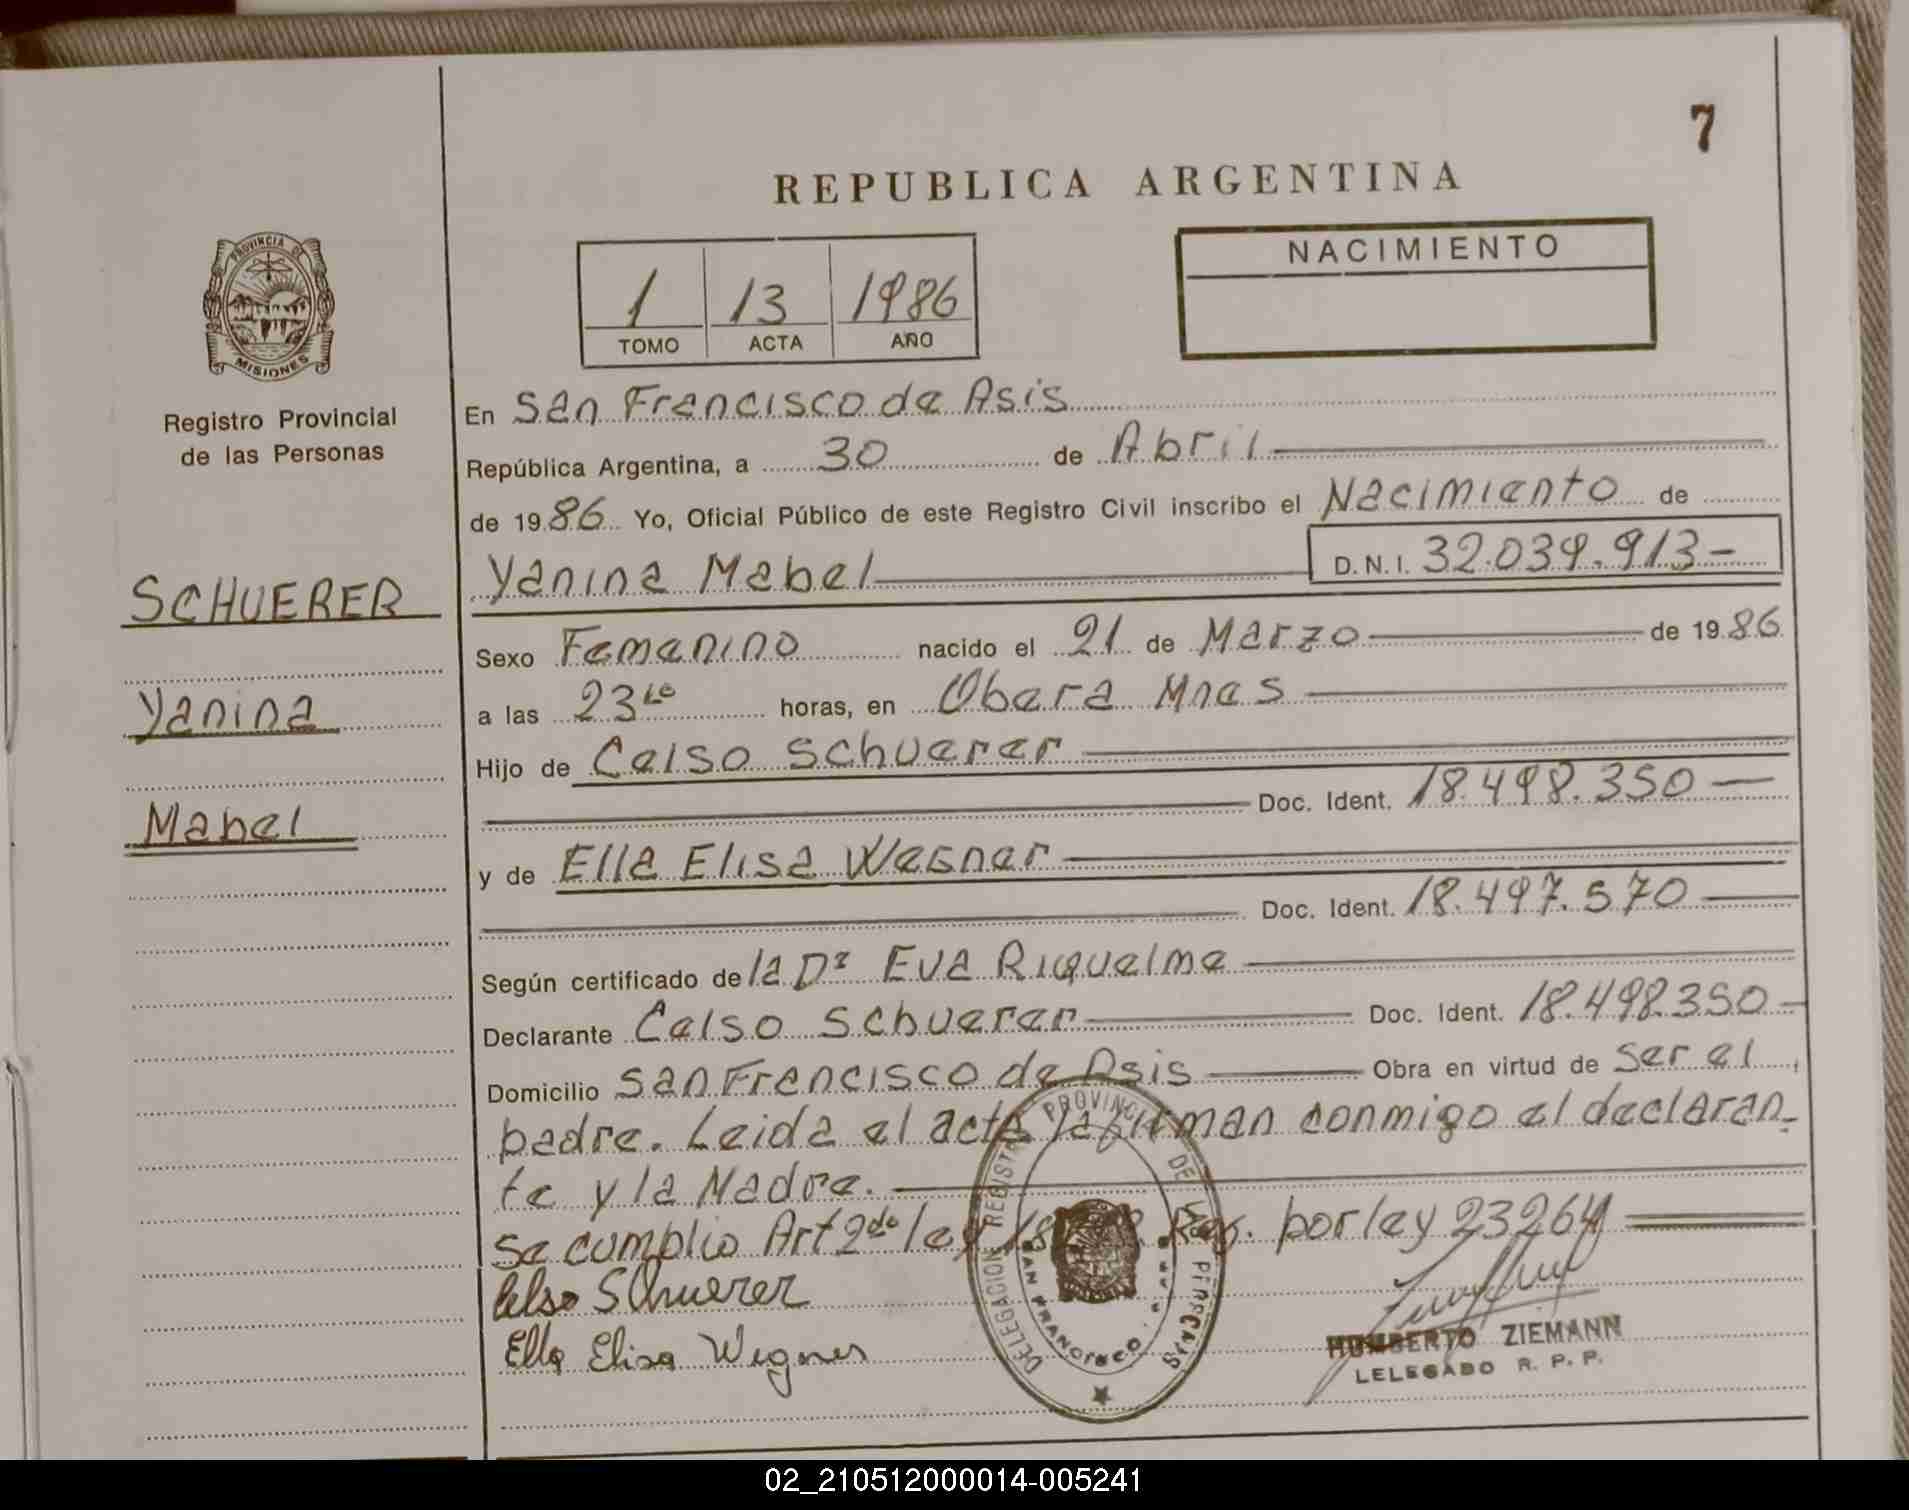 7
REPUBLICA ARGENTINA
PROVINCIA DE
MISIONES
Registro Provincial
de las Personas
SCHUERER
Yanina
Mabel
1 13 1986
TOMO ACTA AÑO
NACIMIENTO
En San Francisco de Asis
República Argentina, a 30 de Abril
de 1986 Yo, Oficial Público de este Registro Civil inscribo el Nacimiento de
Yanina Mabel D.N.I. 32.039.913-
Sexo Femenino nacido el 21 de Marzo de 1986
a las 23 horas, en Obera Mnes
Hijo de Celso Schuerer
Doc. Ident. 18.498.350
y de Ella Elisa Wegner
Doc. Ident. 18.497.570
Según certificado de la Dra Eva Riquelme
Declarante Celso Schuerer Doc. Ident. 18.498.350-
Domicilio San Francisco de Asis Obra en virtud de ser el
padre. Leida el acta la firman conmigo el declaran-
te y la Madre.
Se cumplio Art 2do ley Reg. por ley 23264
Celso Schuerer
Ella Elisa Wegner
DELEGACION REGISTRO PROVINCIAL DE LAS PERSONAS
SAN FRANCISCO
HUMBERTO ZIEMANN
LELEGADO R. P. P.
02_210512000014-005241